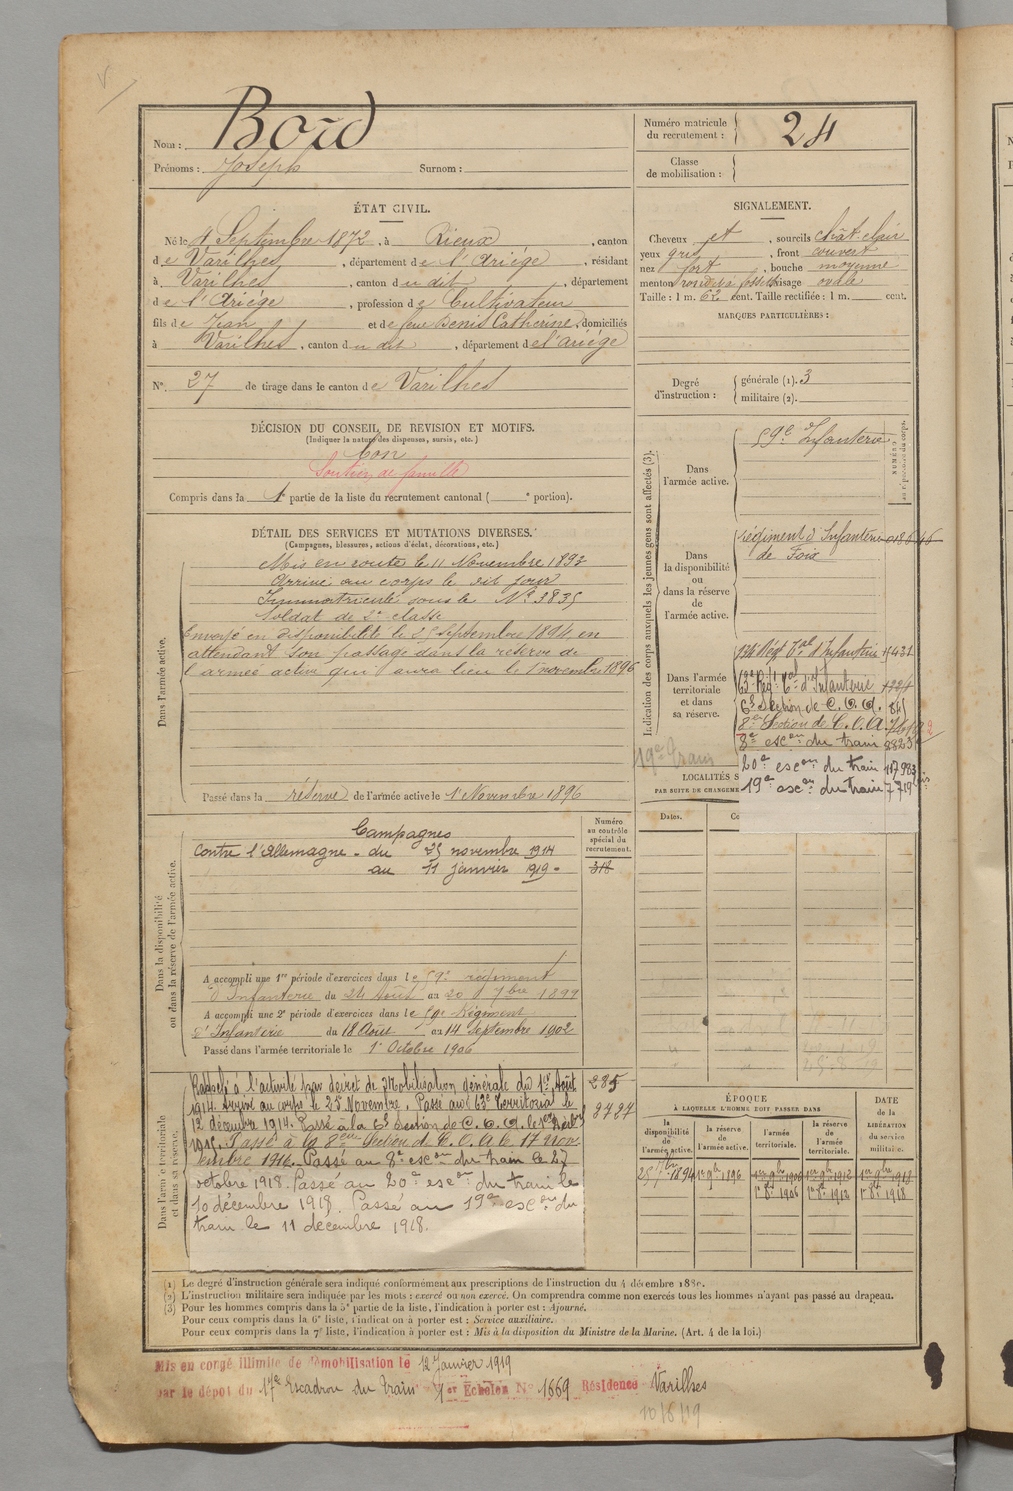 Nom : Bord
Prénoms : Joseph Surnom :
Numéro matricule du recrutement : 24
Classe de mobilisation :
ÉTAT CIVIL.
Né le 4 Septembre 1872, à Rieux, canton
de Varilhes, département de l'Ariège, résidant
à Varilhes, canton du dit, département
de l'Ariège, profession de Cultivateur
fils de Jean et de feue Denis Catherine, domiciliés
à Varilhes, canton du dit, département de l'ariège
N°. 27 de tirage dans le canton de Varilhes
SIGNALEMENT.
Cheveux et, sourcils chât. clair
yeux gris, front couvert
nez fort, bouche moyenne
menton rond à fossette visage ovale
Taille : 1 m. 62 cent. Taille rectifiée : 1 m. cent.
MARQUES PARTICULIÈRES :
Degré d'instruction : générale (1). 3
militaire (2).
DÉCISION DU CONSEIL DE REVISION ET MOTIFS.
(Indiquer la nature des dispenses, sursis, etc.)
bon
Soutien de famille
Compris dans la 1e partie de la liste du recrutement cantonal ( e portion).
DÉTAIL DES SERVICES ET MUTATIONS DIVERSES.
(Campagnes, blessures, actions d'éclat, décorations, etc.)
Dans l'armée active.
Mis en route le 11 Novembre 1893
Arrivé au corps le dit jour
Immatriculé sous le N° 3835
Soldat de 2e classe
Envoyé en disponibilité le 25 Septembre 1894, en
attendant son passage dans la réserve de
l'armée active qui aura lieu le 1 novembre 1896
Passé dans la réserve de l'armée active le 1 Novembre 1896
Indication des corps auxquels les jeunes gens sont affectés (3).
Dans l'armée active.
59e Infanterie
NUMÉROS
Dans la disponibilité ou dans la réserve de l'armée active.
régiment d'Infanterie
de Foix
Dans l'armée territoriale et dans sa réserve.
136 Rég. Tal d'Infanterie
63e Régt Tal d'Infanterie
6e Section de C.O.A. 845
8e Section de C.O.A.
8e escon du train
20e escon du train
19e escon du train
19e Train
LOCALITÉS S
PAR SUITE DE CHANGEME
Dates.
Dans la disponibilité ou dans la réserve de l'armée active.
Campagnes
Contre l'Allemagne - du 25 novembre 1914
au 11 janvier 1919.
Numéro au contrôle spécial du recrutement.
318
A accompli une 1re période d'exercices dans le 59e régiment
d'Infanterie du 24 Août au 20 7bre 1899
A accompli une 2e période d'exercices dans le 59e Régiment
d'Infanterie du 18 Août au 14 Septembre 1902
Passé dans l'armée territoriale le 1 Octobre 1906
Dans l'armée territoriale et dans sa réserve.
Rappelé à l'activité par décret de Mobilisation générale du 1er Août
1914. Arrivé au corps le 25 Novembre. Passé au 63e Territorial le
12 décembre 1914. Passé à la 6e Section de C.O.A. le 1er
1915. Passé à la 8eme Section de C.O.A. le 17 nov
embre 1916. Passé au 8e escon du train le 27
octobre 1918. Passé au 20e escon du train le
10 décembre 1918. Passé au 19e escon du
train le 11 décembre 1918.
225
ÉPOQUE
A LAQUELLE L'HOMME DOIT PASSER DANS
la disponibilité de l'armée active.
la réserve de l'armée active.
l'armée territoriale.
la réserve de l'armée territoriale.
DATE de la LIBÉRATION du service militaire.
25 7bre 1894 1er 9bre 1896 1er 9bre 1906 1er 9bre 1912 1er 9bre 1918
1er 8bre 1906 1er 8bre 1912 1er 8bre 1918
(1) Le degré d'instruction générale sera indiqué conformément aux prescriptions de l'instruction du 4 décembre 1880.
(2) L'instruction militaire sera indiquée par les mots : exercé ou non exercé. On comprendra comme non exercés tous les hommes n'ayant pas passé au drapeau.
(3) Pour les hommes compris dans la 5e partie de la liste, l'indication à porter est : Ajourné.
Pour ceux compris dans la 6e liste, l'indication à porter est : Service auxiliaire.
Pour ceux compris dans la 7e liste, l'indication à porter est : Mis à la disposition du Ministre de la Marine. (Art. 4 de la loi.)
Mis en congé illimité de démobilisation le 12 Janvier 1919
par le dépot du 17e Escadron du Train 1er Echelon N° 1669 Résidence Varilhes
10/6/19